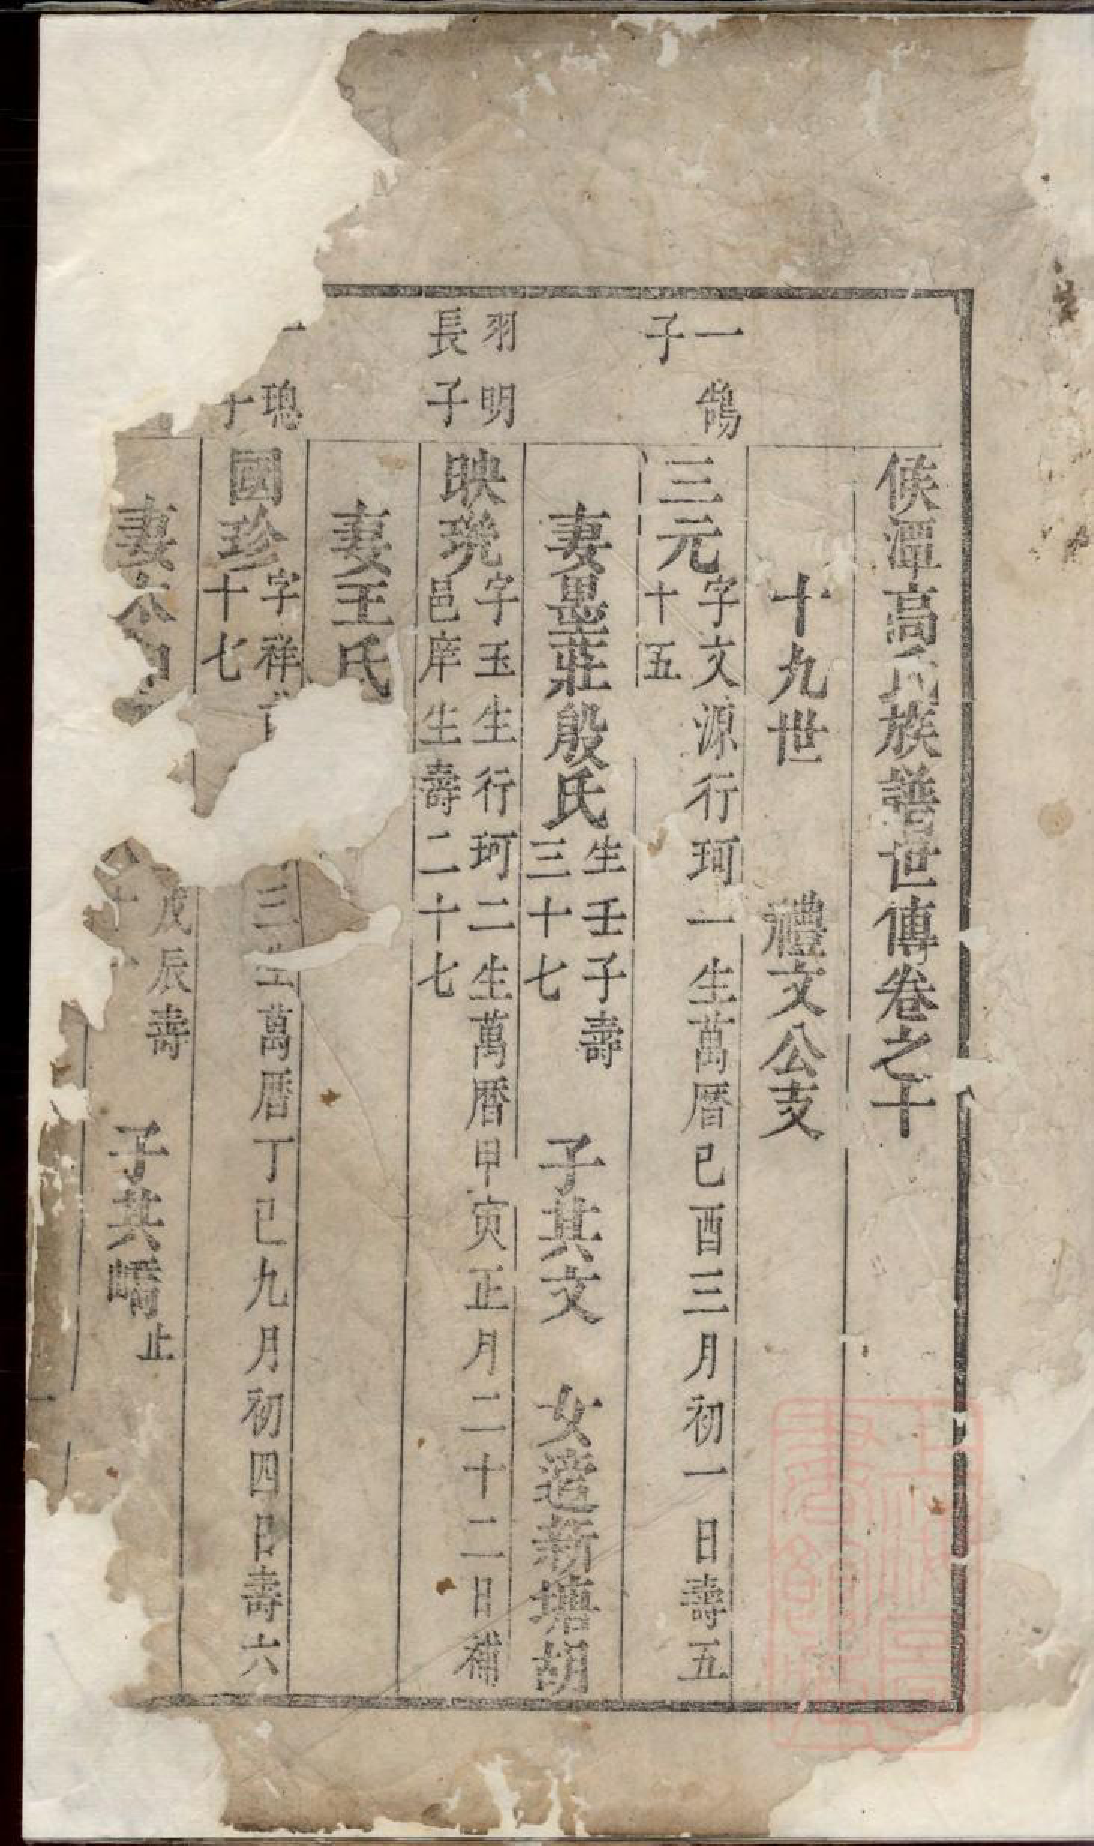 候潭高氏族譜世傳卷之十
十九世　禮文公支
一鵠
子
三元
字文源行珂一生萬曆己酉三月初一日壽五
十五
妻墨莊殷氏
生壬子壽
三十七
子其文　女適新塘胡
羽明
長子
映珖
字玉生行珂二生萬曆甲寅正月二十二日補
邑庠生壽二十七
妻王氏
一璁
子
國珍
字祥
三生萬曆丁巳九月初四日壽六
十七
妻
戊辰壽
子其嶠止
一